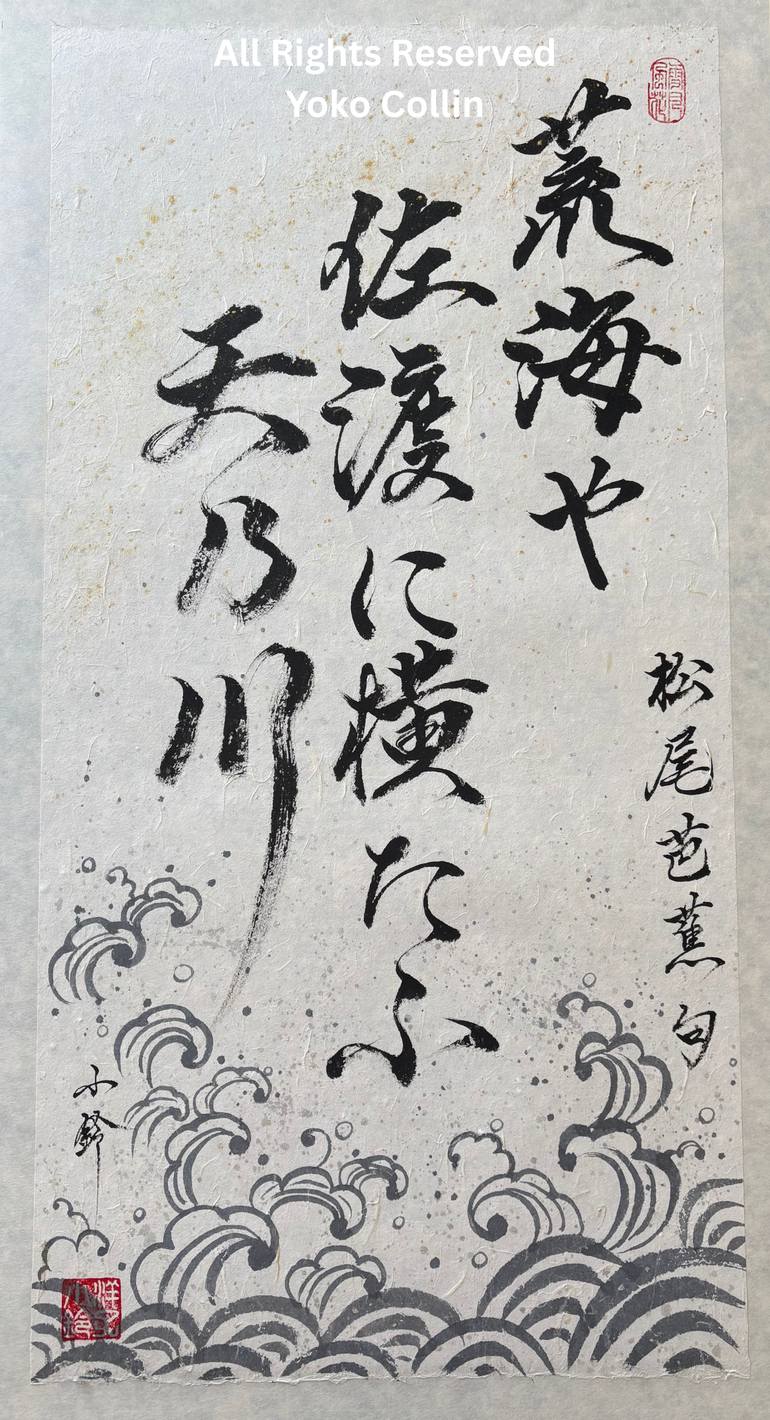 All Rights Reserved
Yoko Collin
荒海や
佐渡に横たふ
天乃川
松尾芭蕉句
小鈴